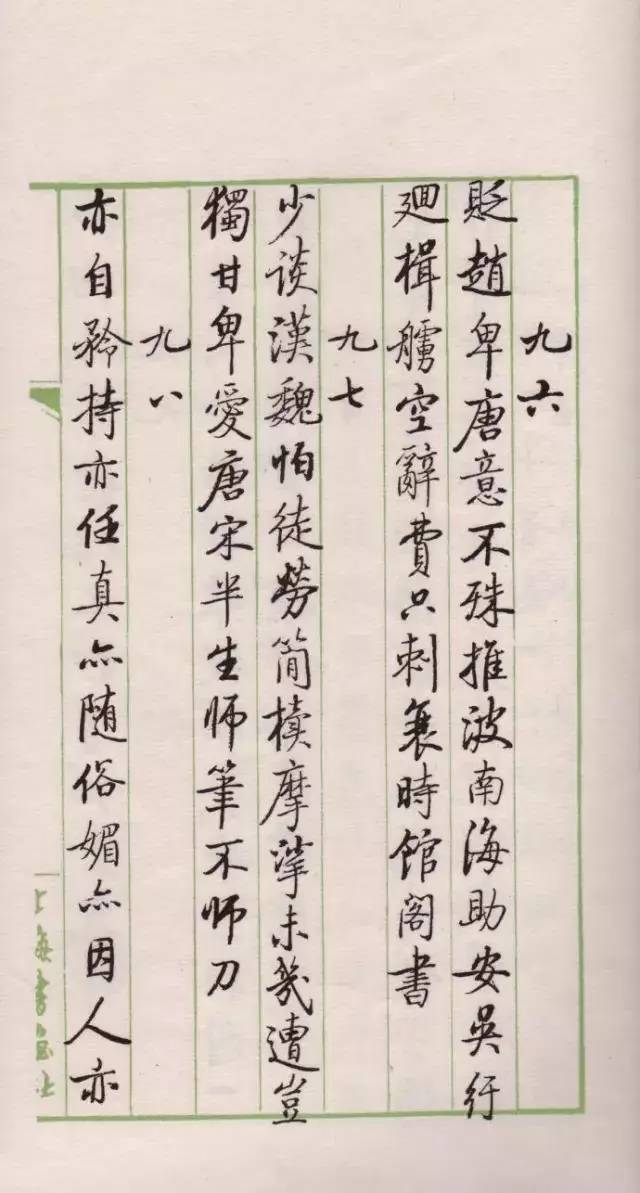 九六
貶趙卑唐意不殊推波南海助安吳紆
廻楫艣空辭費只刺衰時館閣書
九七
少谈漢魏怕徒勞简牘摩挲未幾遭豈
獨甘卑愛唐宋半生师筆不师刀
九八
亦自矜持亦任真亦随俗媚亦因人亦
上海書画社